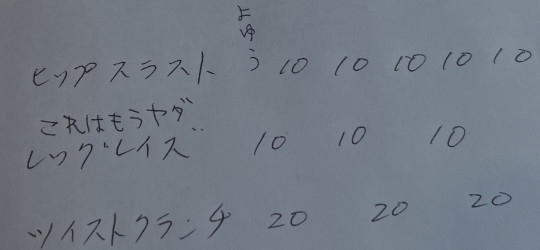 よゆう
ヒップスラスト 10 10 10 10 10
これはもうヤダ‥
レッグレイズ 10 10 10
ツイストクランチ 20 20 20